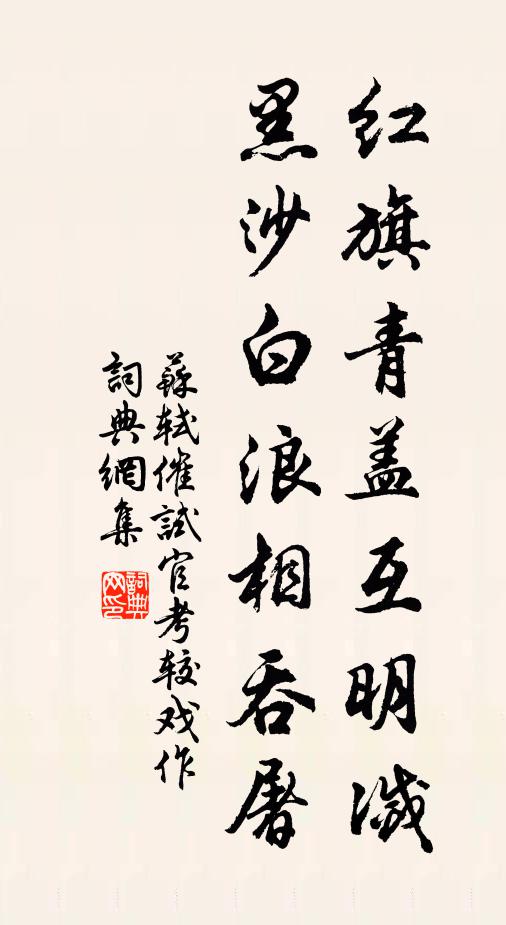 红旗青盖互明滅
黑沙白浪相吞屠
蘇轼催試官考较戏作
詞典網集
詞典网印